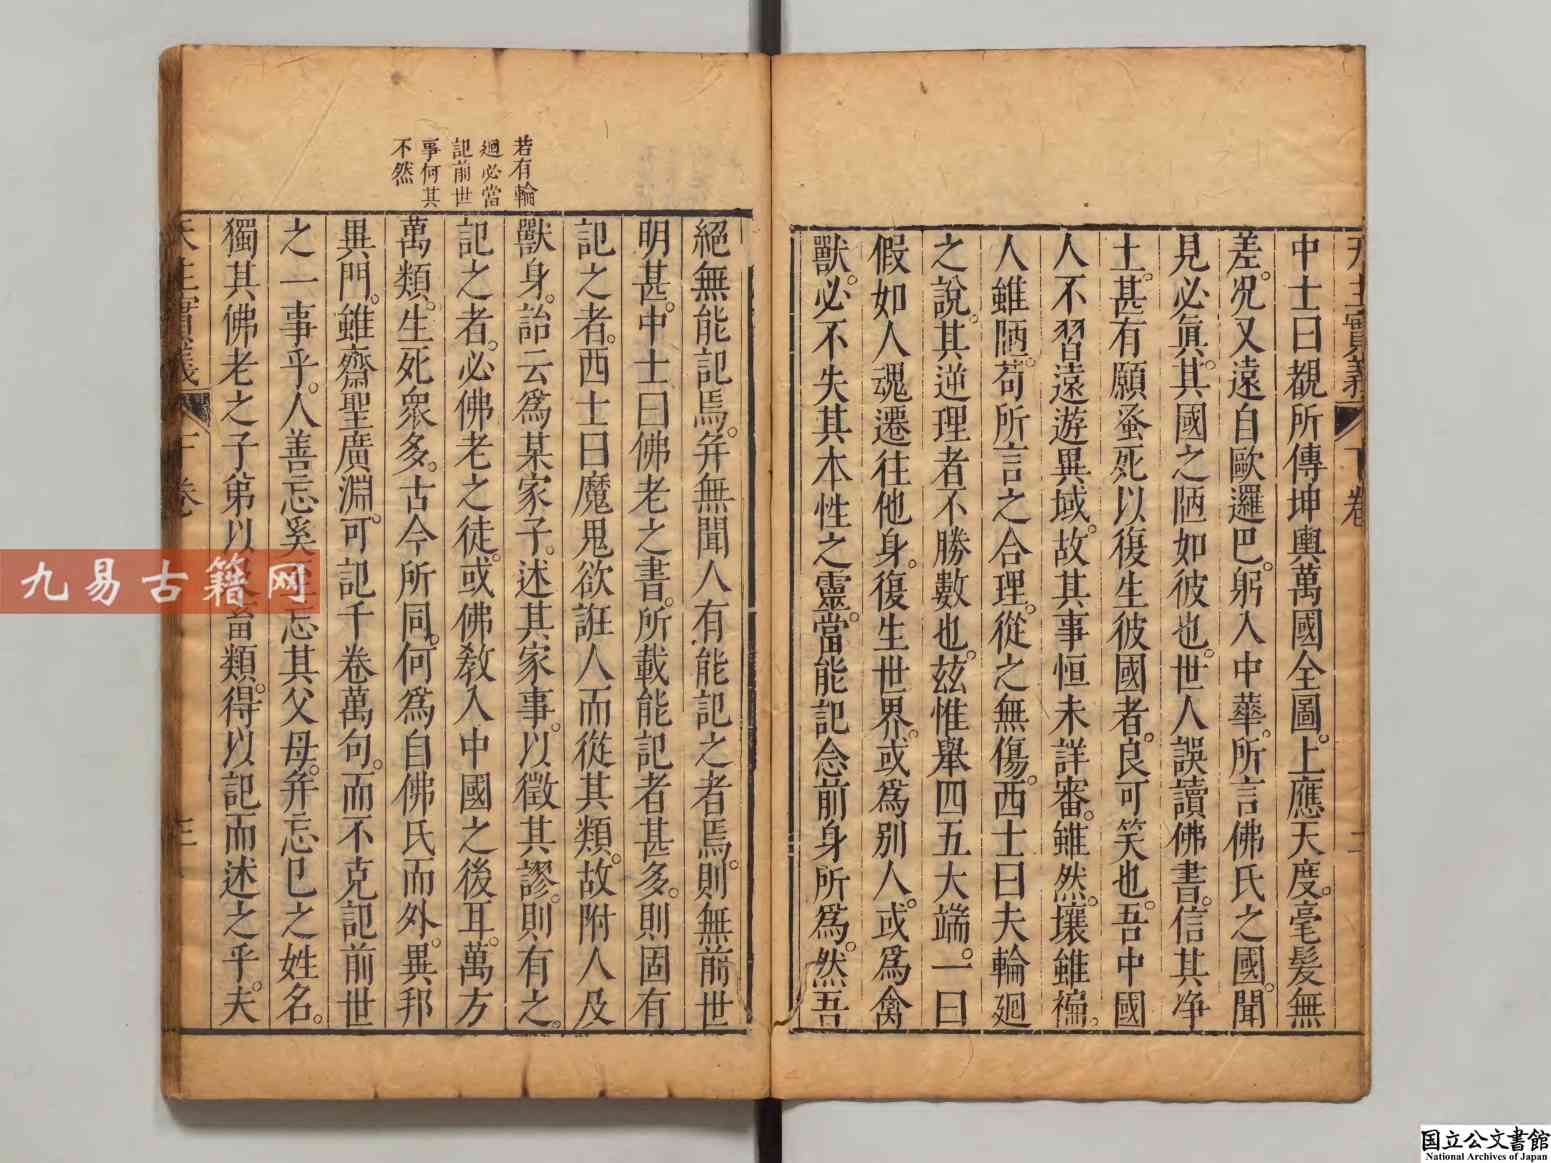 天主實義 下卷 二
中士曰觀所傳坤輿萬國全圖。上應天度。毫髮無
差。况又遠自歐邏巴。躬入中華。所言佛氏之國。聞
見必眞。其國之陋如彼也。世人誤讀佛書。信其淨
土。甚有願蚤死以復生彼國者。良可笑也。吾中國
人不習遠遊異域。故其事恒未詳審。雖然。壤雖褊。
人雖陋。苟所言之合理。從之無傷。西士曰夫輪廻
之說。其逆理者不勝數也。玆惟舉四五大端。一曰
假如人魂遷往他身。復生世界。或爲别人。或爲禽
獸。必不失其本性之靈。當能記念前身所爲。然吾
若有輪
廻必當
記前世
事何其
不然
絕無能記焉。并無聞人有能記之者焉。則無前世
明甚。中士曰佛老之書。所載能記者甚多。則固有
記之者。西士曰魔鬼欲誑人而從其類。故附人及
獸身。詒云爲某家子。述其家事。以徵其謬。則有之。
記之者。必佛老之徒。或佛教入中國之後耳。萬方
萬類。生死衆多。古今所同。何爲自佛氏而外。異邦
異門。雖齋聖廣淵。可記千卷萬句。而不克記前世
之一事乎。人善忘奚忘其父母。并忘已之姓名。
獨其佛老之子弟以畜類。得以記而述之乎。夫
天主實義 下卷 三
九易古籍网
国立公文書館
National Archives of Japan